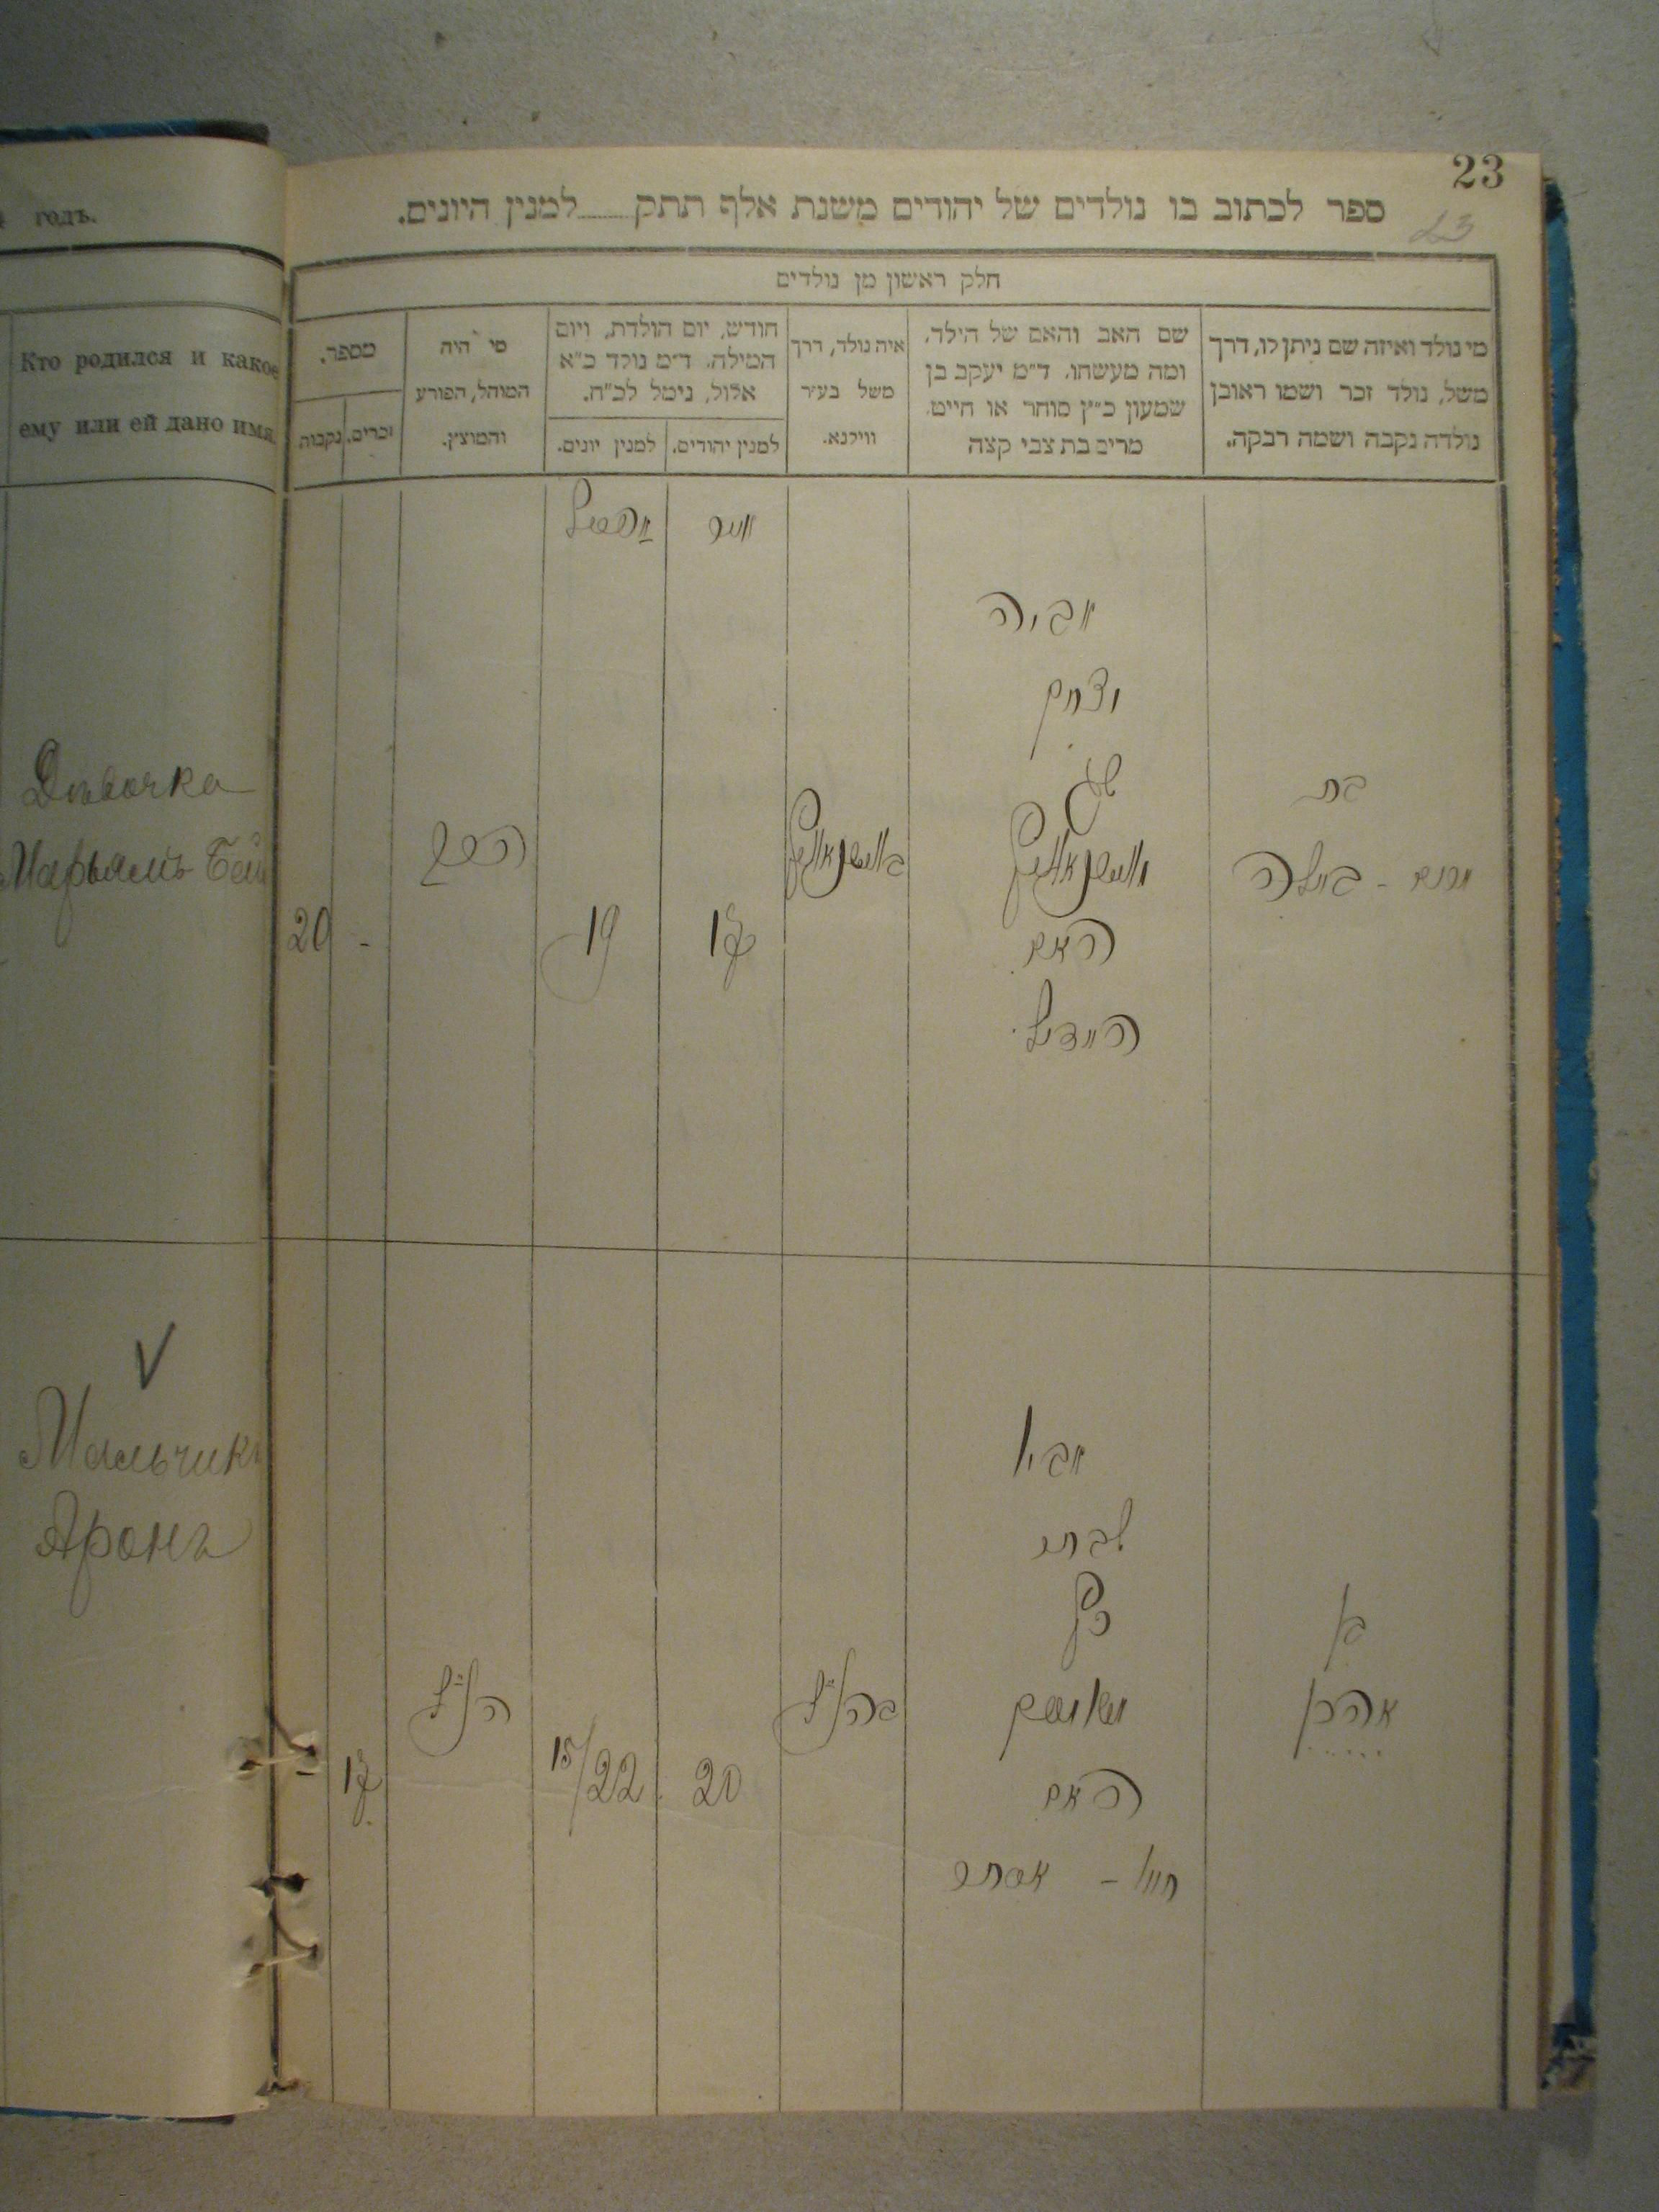 23
23
годъ.
ספר לכתוב בו נולדים של יהודים משנת אלף תתק למנין היונים.
חלק ראשון מן נולדים
מי נולד ואיזה שם ניתן לו, דרך
משל, נולד זכר ושמו ראובן
נולדה נקבה ושמה רבקה.
שם האב והאם של הילד,
ומה מעשהו. ד״מ יעקב בן
שמעון כ״ץ סוחר או חייט.
מרים בת צבי קצה
איה נולד, דרך
משל בעיר
ווילנא.
חודש, יום הולדת, ויום
המילה. ד״מ נולד כ״א
אלול, נימל לכ״ח.
למנין יהודים.
למנין יונים.
מי היה
המוהל, הפורע
והמוצץ.
מספר.
זכרים.
נקבות
Кто родился и какое
ему или ей дано имя
אביה
האם
היינדיל
בת
מרים - ביילה
17
19
-
20
Дѣвочка
Марьямъ Бей
אביו
שבתי
האם
אסתר
בן
אהרן
בהנ״ל
20
15/22
הנ״ל
17
Мальчикъ
Аронъ